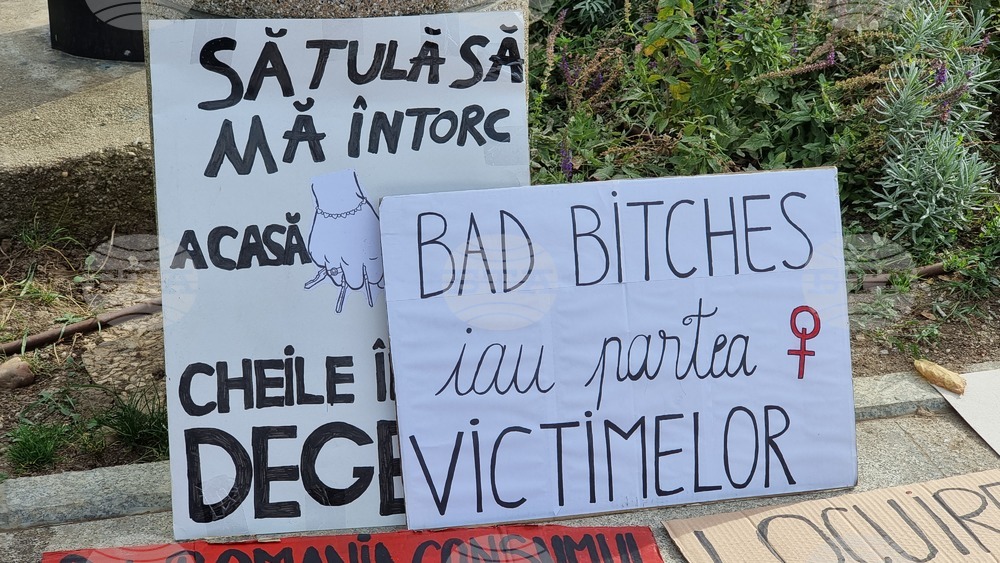 SĂTULĂ SĂ
MĂ ÎNTORC
ACASĂ
CHEILE Î
DEGE
BAD BITCHES
iau partea ♀
VICTIMELOR
ROMANIA CONSUMUL
LOCUIRE